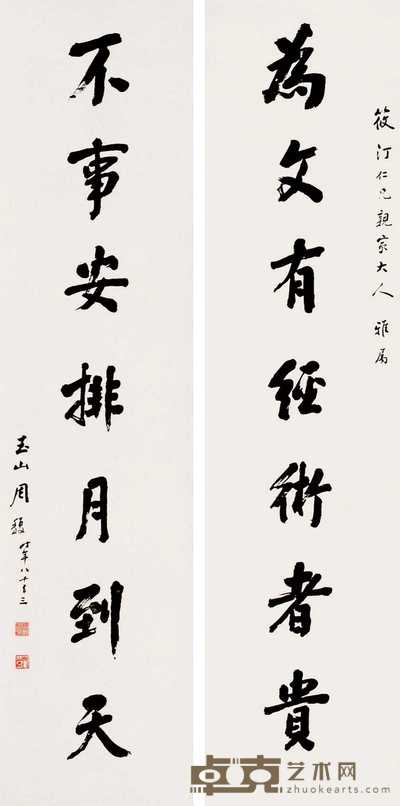 筱汀仁兄親家大人 雅屬
為文有經術者貴
不事安排月到天
玉山周馥時年八十有三
卓克艺术网
zhuokearts.com